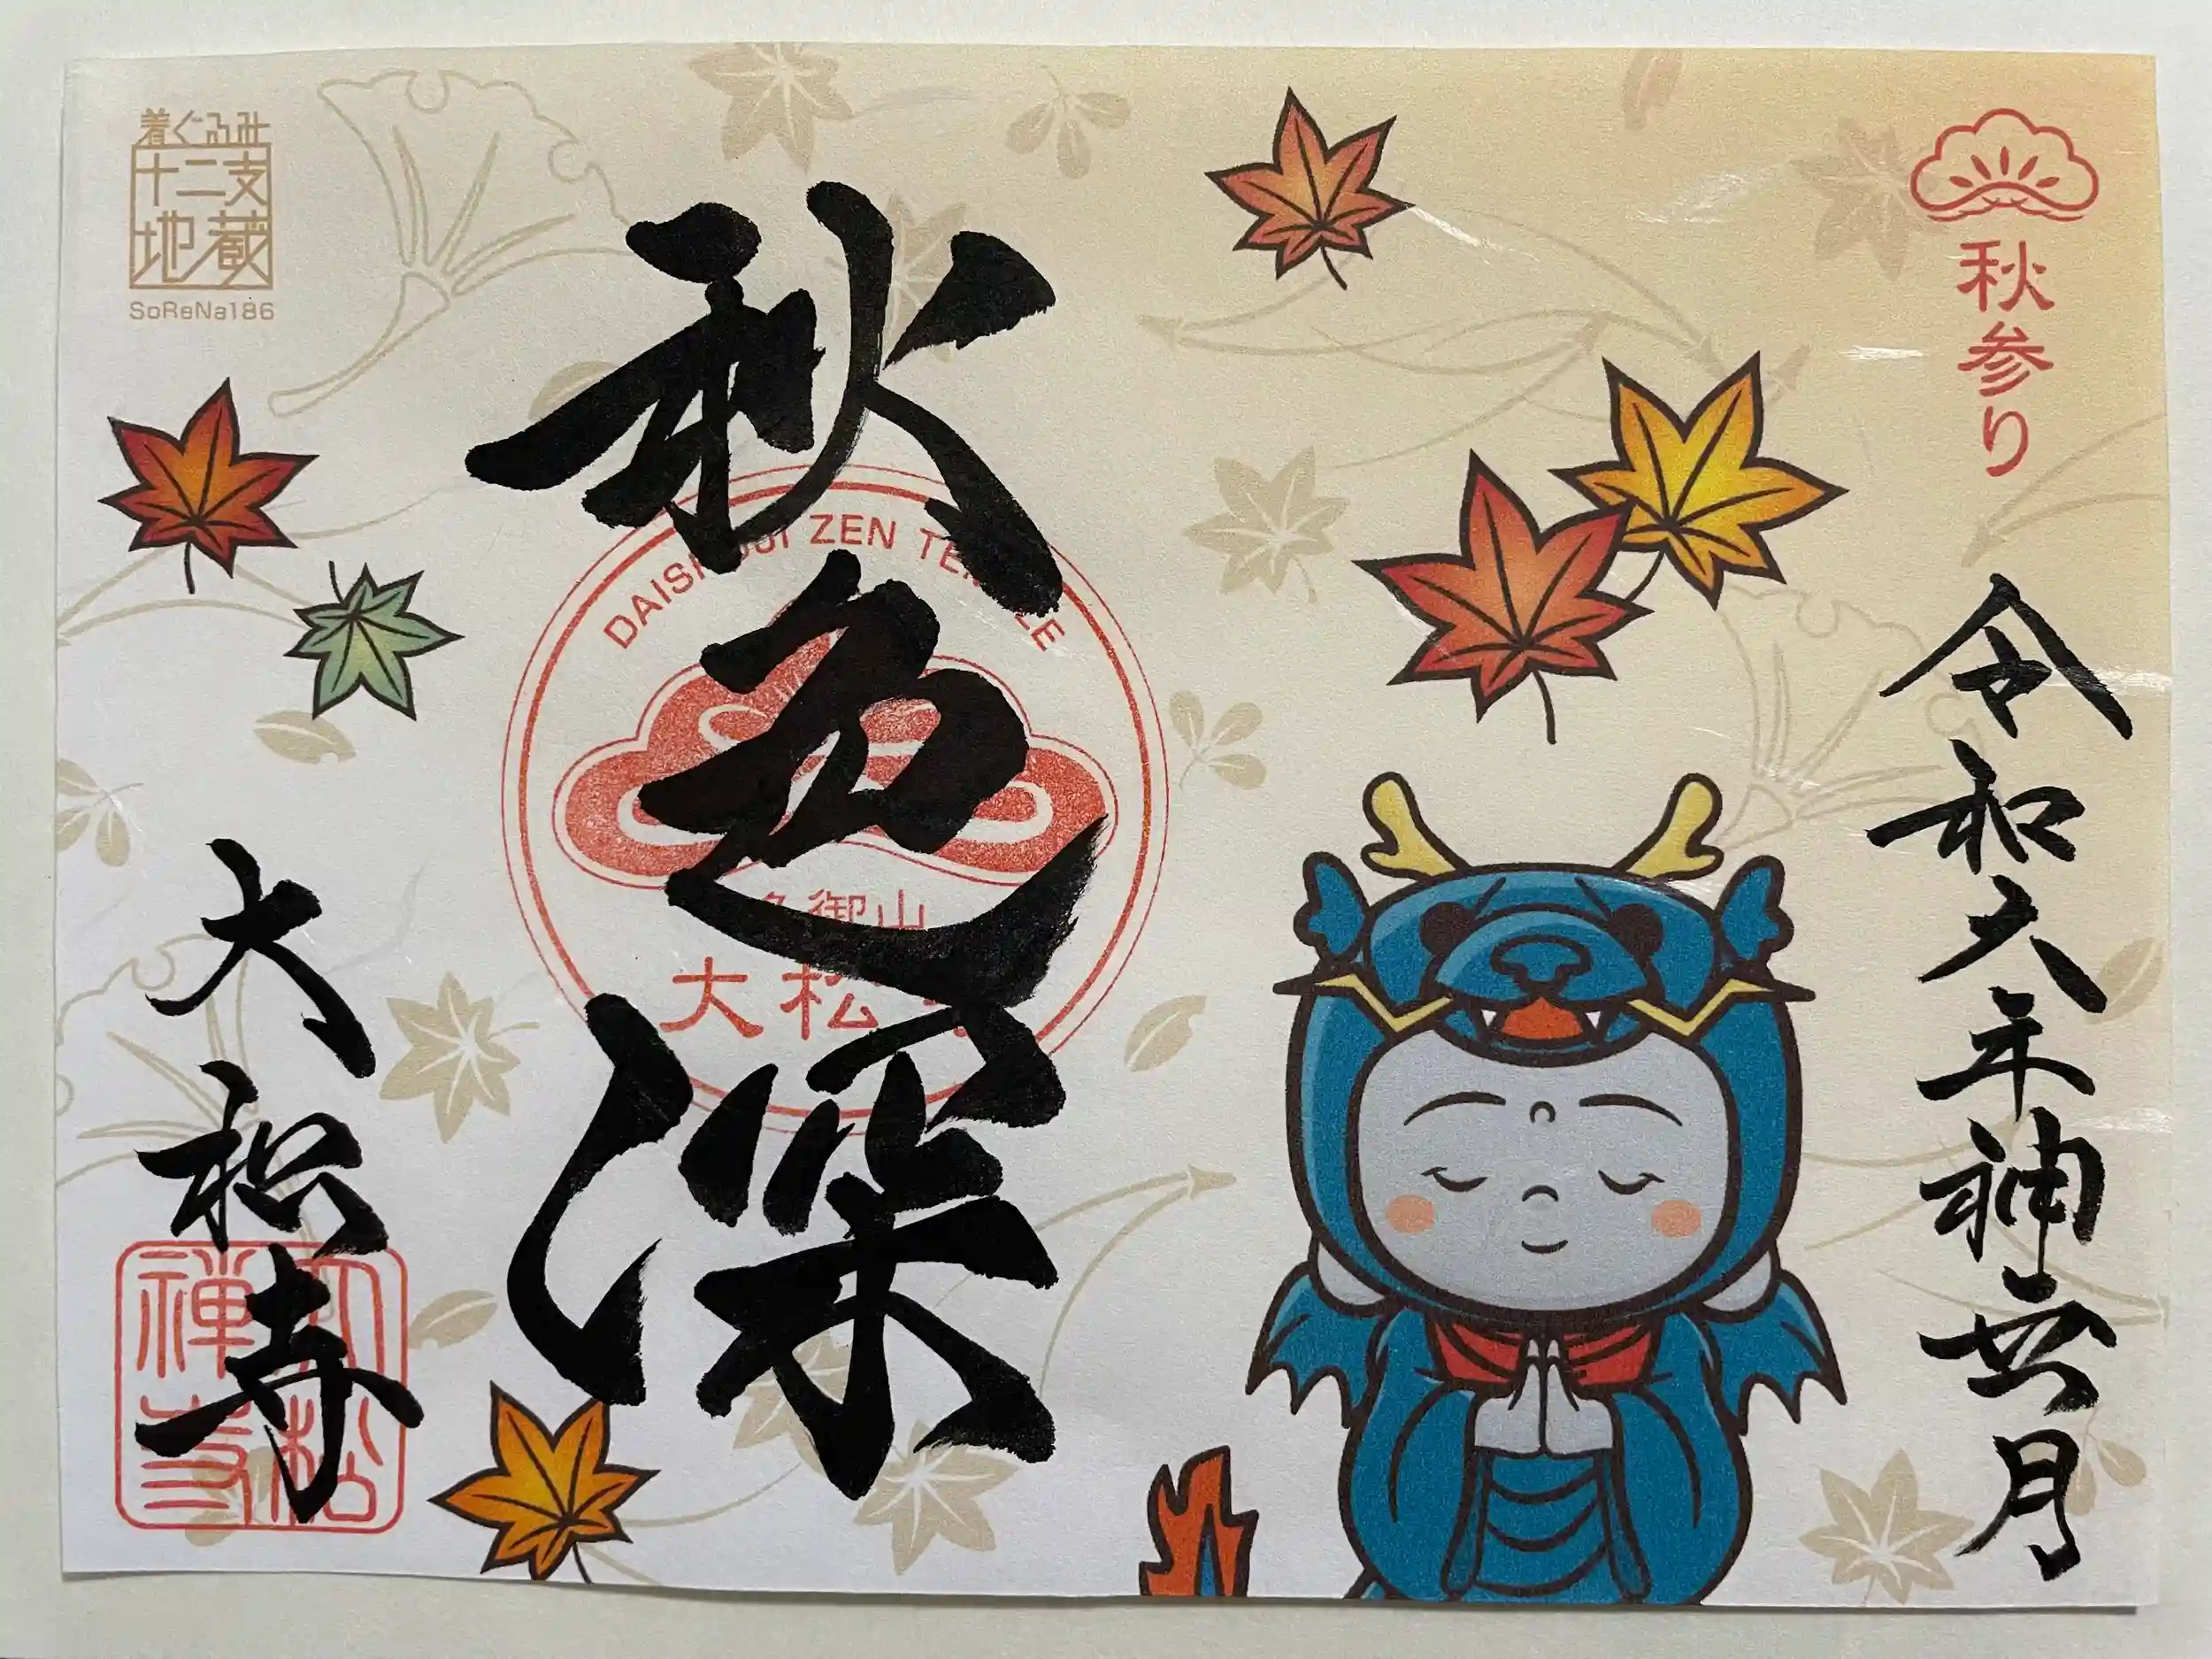 秋参り
令和六年神無月
秋色深
DAISHOUJI ZEN TEMPLE
御山
大松寺
大松寺
大松禅寺
着ぐるみ
十二支
地蔵
SoReNa186